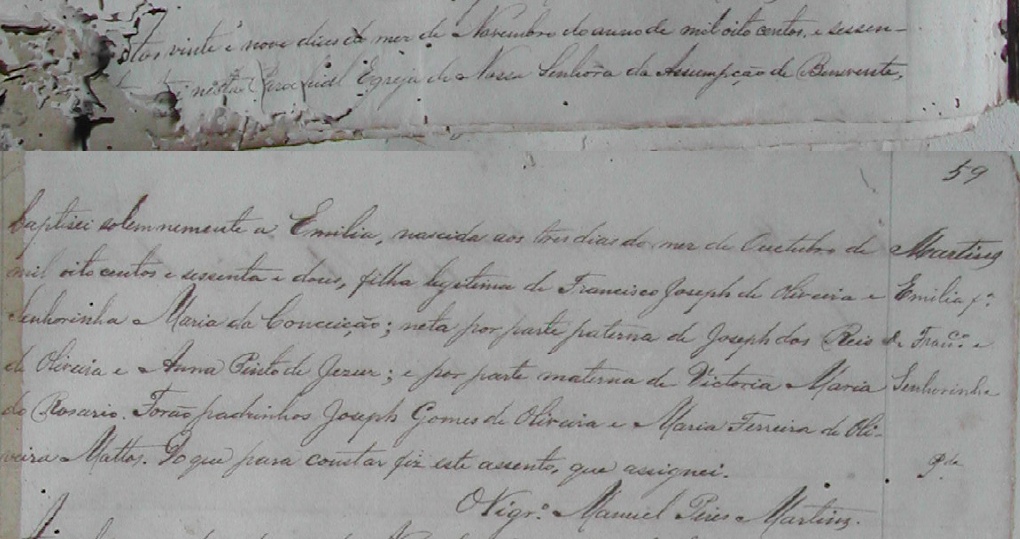 Aos vinte e nove dias do mez de Novembro do anno de mil oito centos, e sessen-
nesta Parochial Egreja de Nossa Senhora da Assumpção de Benevente,
59
baptisei solemnemente a Emilia, nascida aos tres dias do mez de Outubro de
mil oito centos e sessenta e dous, filha legitima de Francisco Joseph de Oliveira e
Senhorinha Maria da Conceição; neta por parte paterna de Joseph dos Reis
de Oliveira e Anna Pinto de Jezus; e por parte materna de Victoria Maria
do Rosario. Forão padrinhos Joseph Gomes de Oliveira e Maria Ferreira de Oli-
veira Mattos. Do que para constar fiz este assento, que assignei.
O Vigr.º Manuel Pires Martins.
Martins
Emilia f.ª
de Fran.co e
Senhorinha